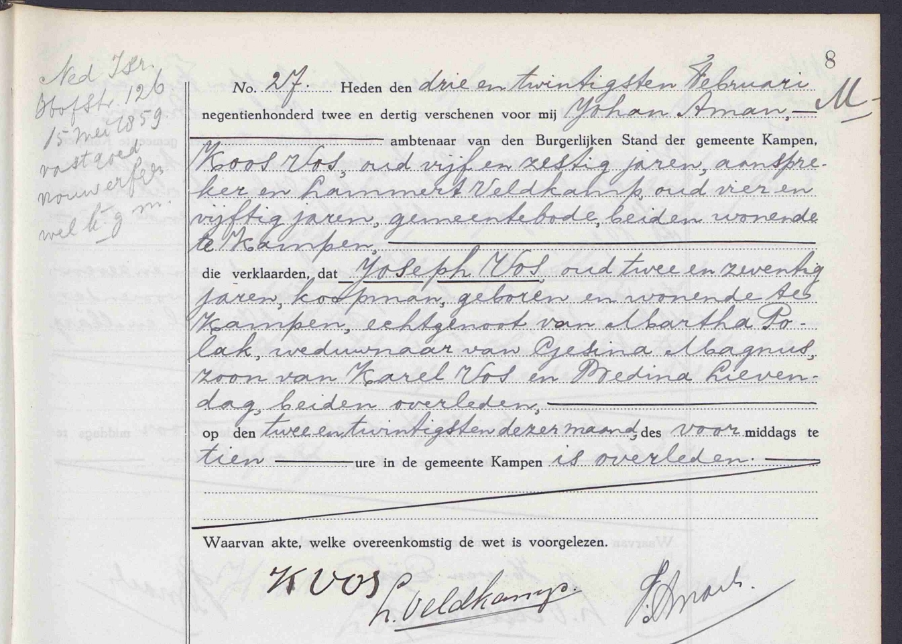 8
Ned Isr.
126
15 Mei 1859
vastgoed
wel k g m.
No. 27. Heden den drie en twintigsten Februari
M
negentienhonderd twee en dertig verschenen voor mij Johan Aman,
ambtenaar van den Burgerlijken Stand der gemeente Kampen,
Koos Vos, oud vijf en zestig jaren, aanspre-
ker en Lammert Veldkamp, oud vier en
vijftig jaren, gemeentebode, beiden wonende
te Kampen,
die verklaarden, dat Joseph Vos, oud twee en zeventig
jaren, koopman, geboren en wonende te
Kampen, echtgenoot van Martha Po-
lak, weduwnaar van Gesina Magnus,
zoon van Karel Vos en Bredina Lieven-
dag, beiden overleden,
op den twee en twintigsten dezer maand, des voor middags te
tien ure in de gemeente Kampen is overleden.
Waarvan akte, welke overeenkomstig de wet is voorgelezen.
K VOS
L. Veldkamp.
J. Aman.